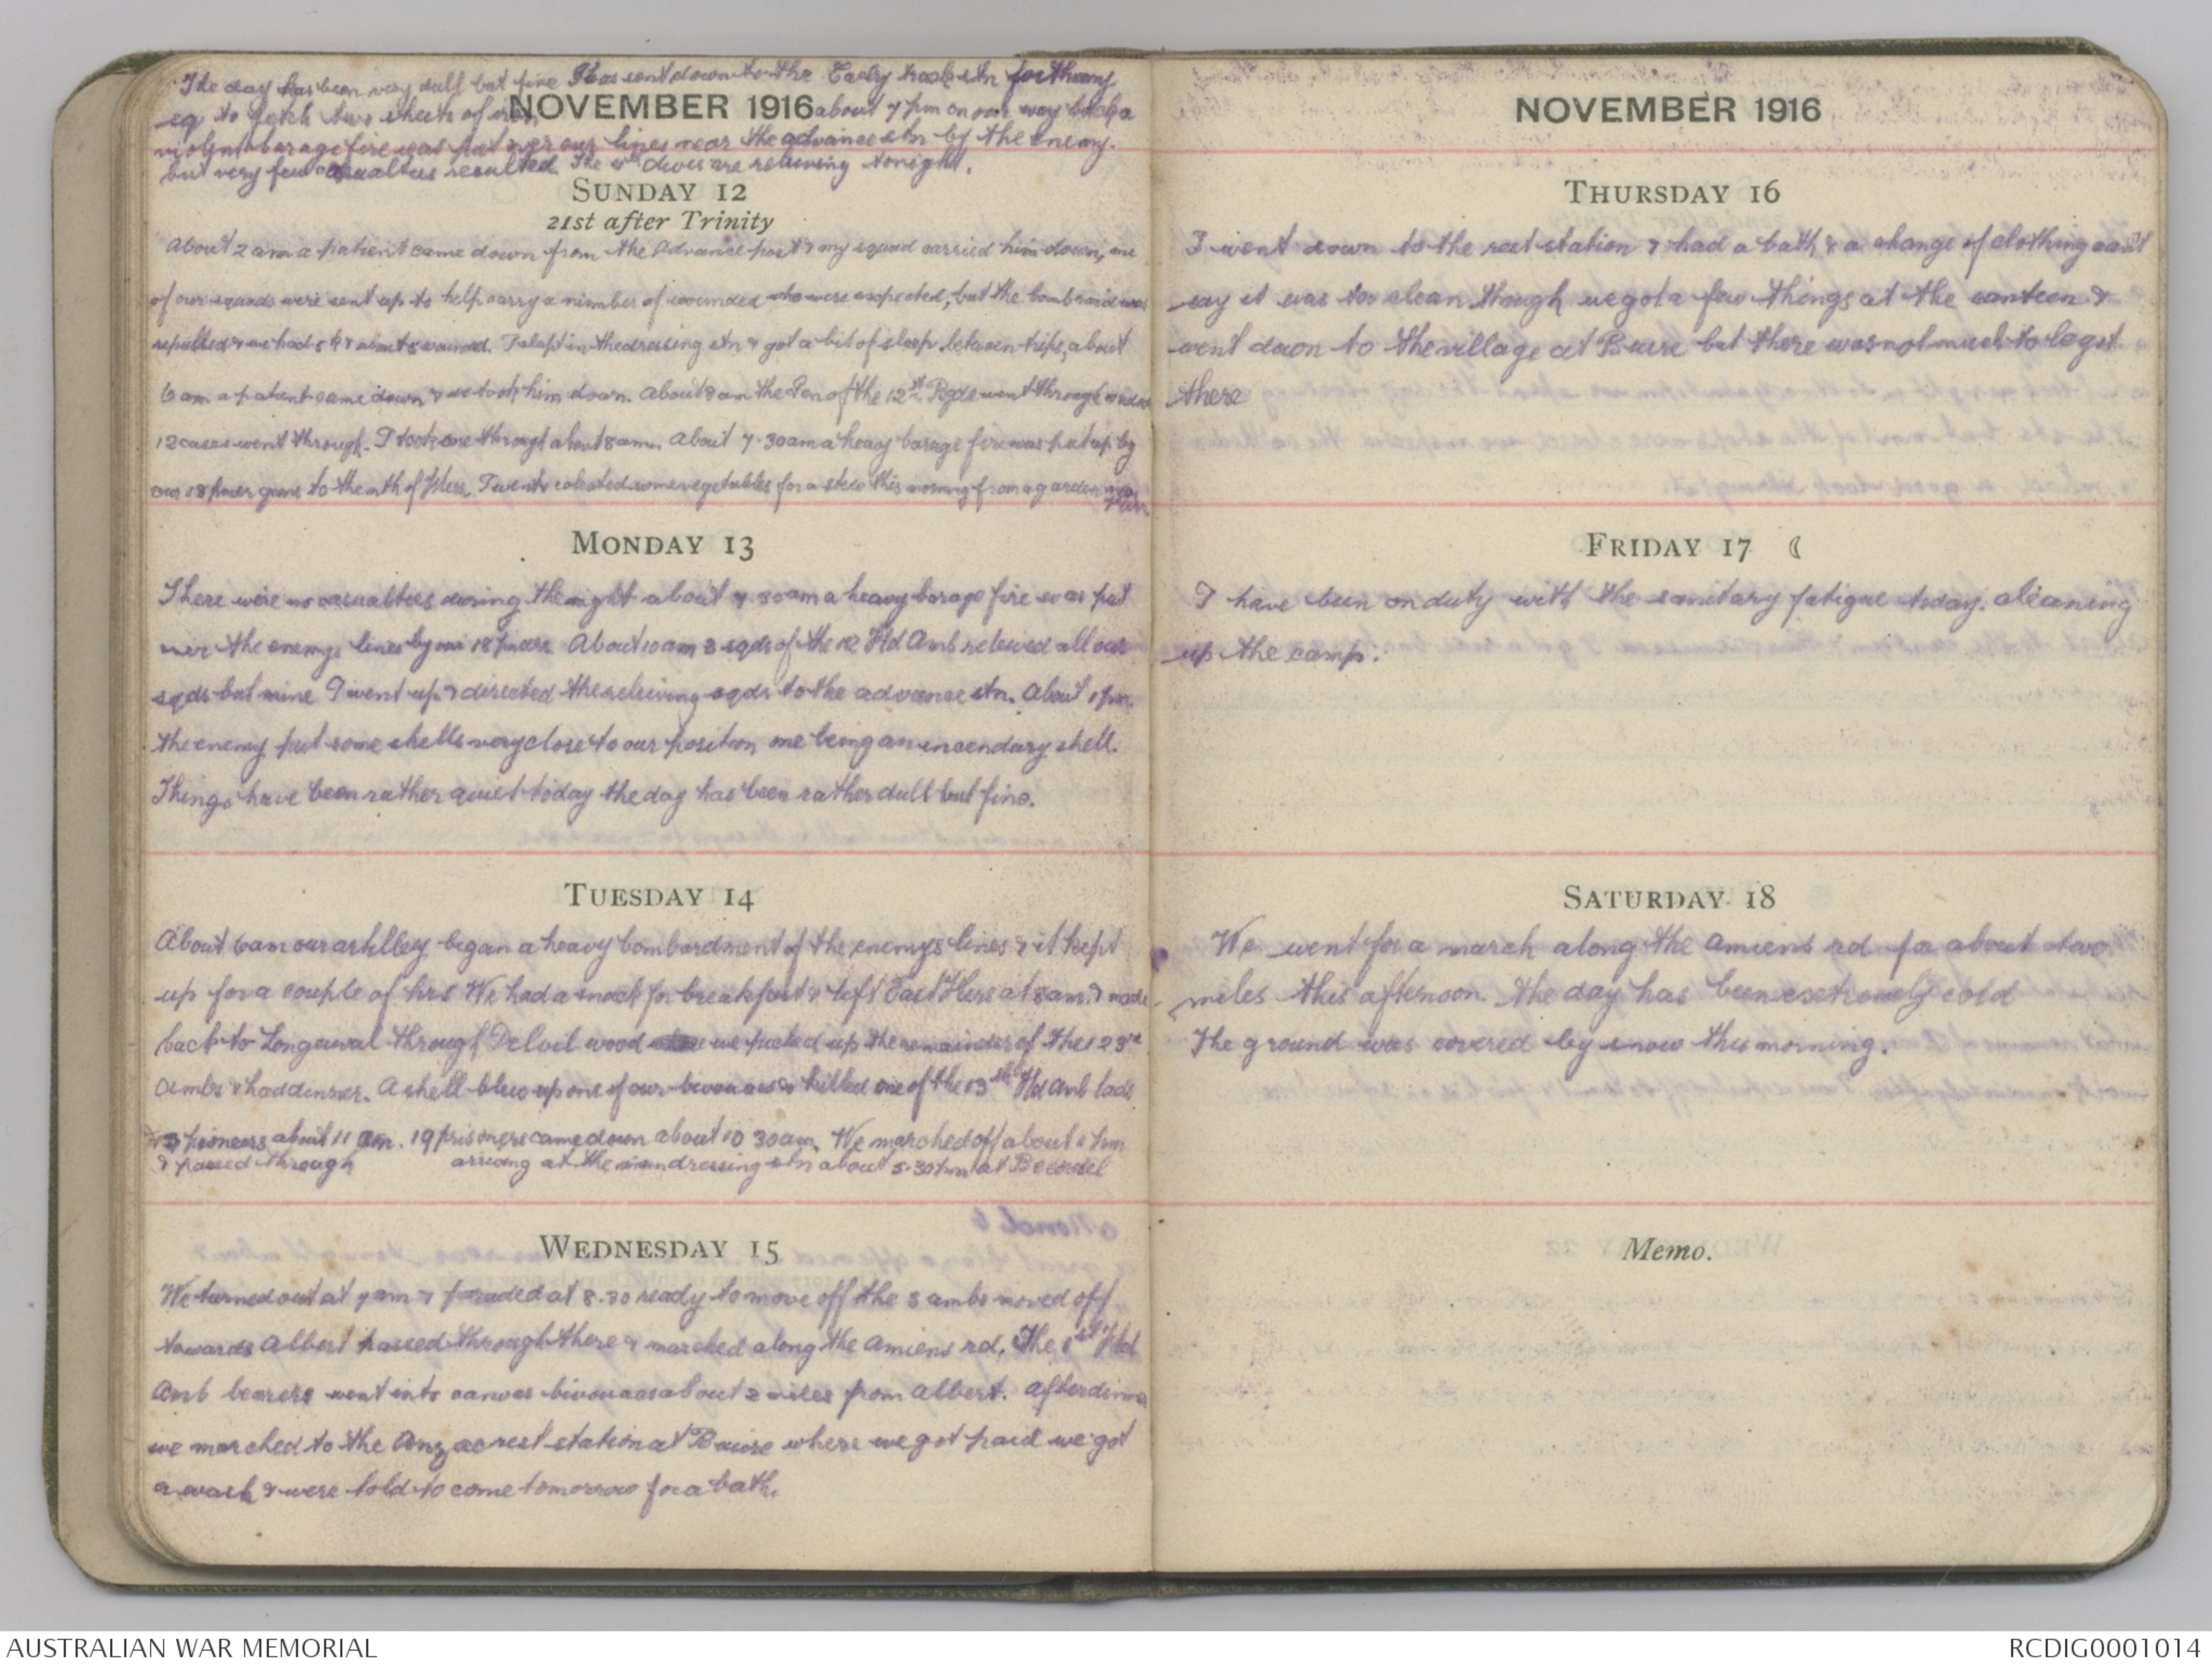 The day has been very dull but fine I was sent down to the track stn
sq to fetch two sheets of iron about 7 pm on our way back a
NOVEMBER 1916
violent barage fire was put over our lines near the advance stn by the enemy.
but very few casualties resulted The divis are relieving tonight.
SUNDAY 12
21st after Trinity
About 2 am a patient came down from the Advance post & my squad carried him down, one
of our squads were sent up to help carry a nimber of wounded who were expected, but the bomb raid was
repulsed & we had 5 k & about 8 wounded. I slept in the dressing stn & got a bit of sleep between trips, about
6 am a patient came down & we took him down. About 8 am the Gen of the 12th Bgde went through
12 cases went through. I took one through about 8 am. About 7-30 am a heavy barage fire was put up by
our 18 pder guns to the nth of Flers. I went & colected some vegetables for a stew this morning from a garden near
MONDAY 13
There were no casualties during the night about 7 30 am a heavy barage fire was put
over the enemys lines by our 18 pnders. About 10 am 3 sqds of the 12 Fld Amb releived all our
sqds but mine I went up & directed the releiving sqds to the advance stn. About 1 pm
the enemy put some shells very close to our position, one being an incendary shell.
Things have been rather quiet today the day has been rather dull but fine.
TUESDAY 14
About 6 am our artilley began a heavy bombardment of the enemys lines & it kept
up for a couple of hrs We had a snack for breakfast & left East Flers at 8 am & made
back to Longueval through Delvil wood we picked up the remainder of the 1 2 3rd
Ambs & had dinner. A shell blew up one of our bivouacs & killed one of the 13th Fld Amb lads
pioneers about 11 am. 19 prisoners came down about 10 30 am. We marched off about pm
& passed through arriving at the main dressing stn about 5-30 pm at Becordel
WEDNESDAY 15
We turned out at 7 am & paraded at 8.30 ready to move off the 3 ambs moved off
towards Albert passed through there & marched along the Amiens rd. The 1st Fld
Amb bearers went into canvas bivouacs about 2 miles from Albert. After dinner
we marched to the Anzac rest station at Buire where we got paid we got
a wash & were told to come tomorrow for a bath.
NOVEMBER 1916
THURSDAY 16
I went down to the rest station & had a bath & a change of clothing can't
say it was too clean though we got a few things at the canteen &
went down to the village at Buire but there was not much to be got
there
FRIDAY 17
I have been on duty with the sanitary fatigue today. cleaning
up the camp.
SATURDAY 18
We went for a march along the Amiens rd for about two
miles this afternoon. The day has been extremely cold
The ground was covered by snow this morning.
Memo.
AUSTRALIAN WAR MEMORIAL
RCDIG0001014